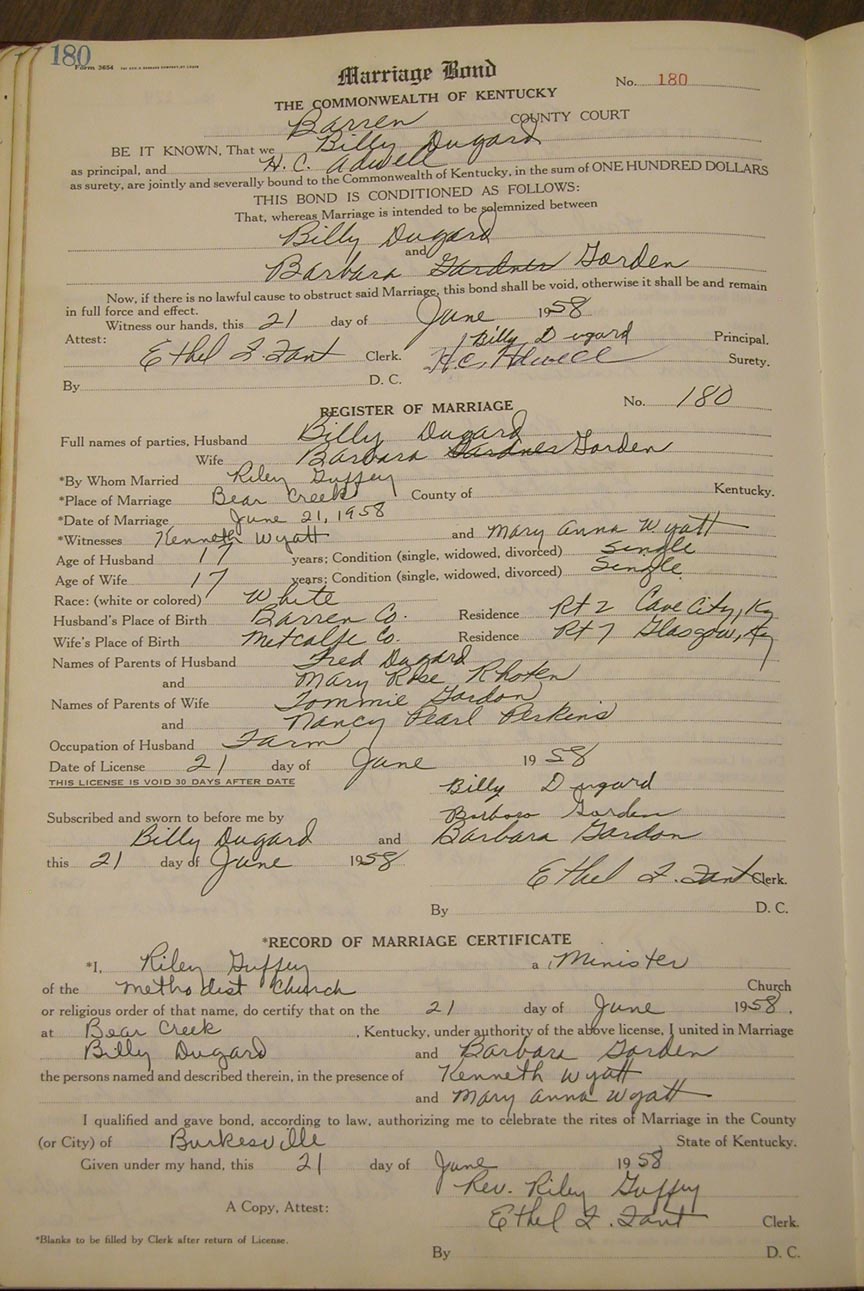 180
Form 3654
Marriage Bond
No. 180
THE COMMONWEALTH OF KENTUCKY
Barren COUNTY COURT
BE IT KNOWN, That we Billy Dugard
as principal, and H. C. Adwell
as surety, are jointly and severally bound to the Commonwealth of Kentucky, in the sum of ONE HUNDRED DOLLARS
THIS BOND IS CONDITIONED AS FOLLOWS:
That, whereas Marriage is intended to be solemnized between
Billy Dugard
and
Barbara Gardner Gorden
Now, if there is no lawful cause to obstruct said Marriage, this bond shall be void, otherwise it shall be and remain
in full force and effect.
Witness our hands, this 21 day of June 1958
Attest: Billy Dugard Principal.
Ethel F. Fant Clerk. H.C. Adwell Surety.
By D. C.
REGISTER OF MARRIAGE No. 180
Full names of parties, Husband Billy Dugard
Wife Barbara Gardner Gorden
*By Whom Married Riley Guffey
*Place of Marriage Bear Creek County of Kentucky.
*Date of Marriage June 21, 1958
*Witnesses Kenneth Wyatt and Mary Anna Wyatt
Age of Husband 17 years; Condition (single, widowed, divorced) Single
Age of Wife 17 years; Condition (single, widowed, divorced) Single
Race: (white or colored) White
Husband's Place of Birth Barren Co. Residence Rt 2 Cave City, Ky
Wife's Place of Birth Metcalfe Co. Residence Rt 7 Glasgow, Ky
Names of Parents of Husband Fred Dugard
and Mary Rose Rhoten
Names of Parents of Wife Tommie Gordon
and Nancy Pearl Perkins
Occupation of Husband Farm
Date of License 21 day of June 1958
THIS LICENSE IS VOID 30 DAYS AFTER DATE
Billy Dugard
Subscribed and sworn to before me by Barbara Gorden
Billy Dugard and Barbara Gardon
this 21 day of June 1958
Ethel F. Fant Clerk.
By D. C.
*RECORD OF MARRIAGE CERTIFICATE
*I, Riley Guffey a Minister
of the Methodist Church Church
or religious order of that name, do certify that on the 21 day of June 1958.
at Bear Creek, Kentucky, under authority of the above license, I united in Marriage
Billy Dugard and Barbara Gorden
the persons named and described therein, in the presence of Kenneth Wyatt
and Mary Anna Wyatt
I qualified and gave bond, according to law, authorizing me to celebrate the rites of Marriage in the County
(or City) of Burkesville State of Kentucky.
Given under my hand, this 21 day of June 1958
Rev. Riley Guffey
A Copy, Attest: Ethel F. Fant Clerk.
*Blanks to be filled by Clerk after return of License.
By D. C.